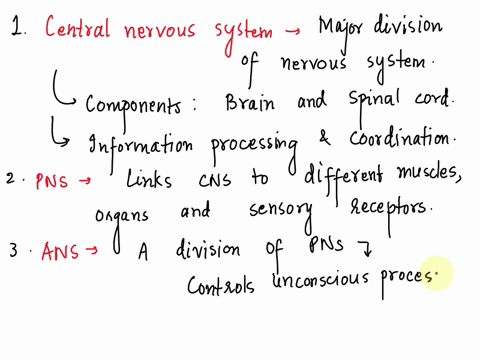 1. Central nervous system → Major division
of nervous system.
↳ Components : Brain and Spinal cord.
↳ Information processing & Coordination.
2. PNS → Links CNS to different muscles,
organs and sensory receptors.
3. ANS → A division of PNS ↴
Controls unconscious proces